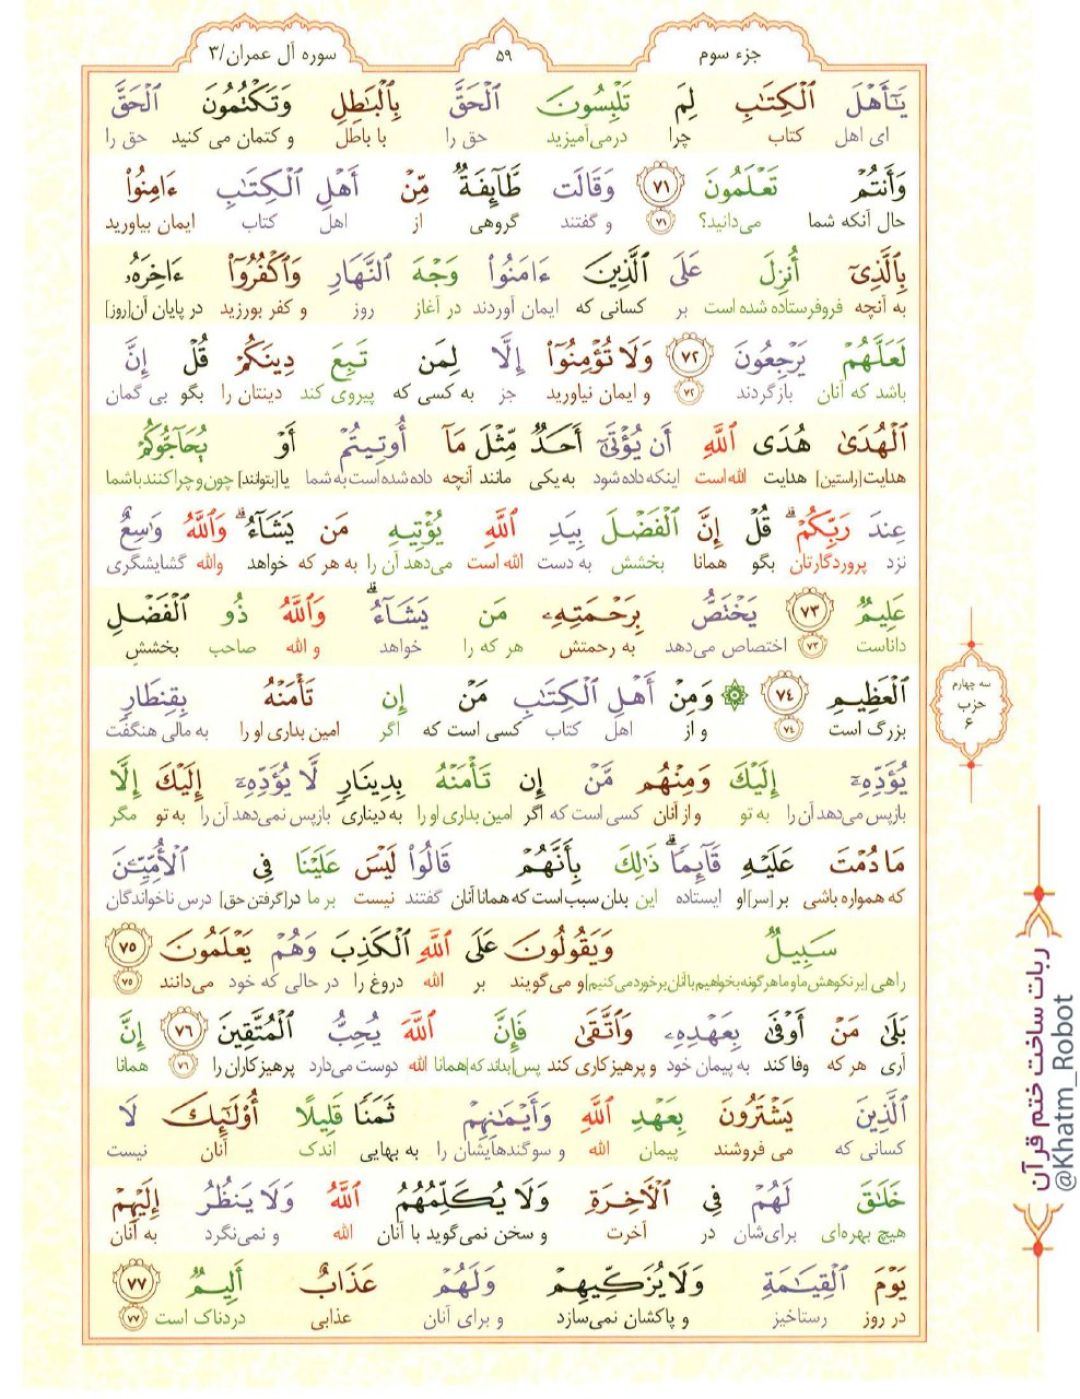 جزء سوم
۵۹
سوره آل عمران/۳
يَٰٓأَهْلَ ٱلْكِتَٰبِ لِمَ تَلْبِسُونَ ٱلْحَقَّ بِٱلْبَٰطِلِ وَتَكْتُمُونَ ٱلْحَقَّ
ای اهل کتاب چرا درمی‌آمیزید حق را با باطل و کتمان می کنید حق را
وَأَنتُمْ تَعْلَمُونَ ۷۱ وَقَالَت طَّآئِفَةٌ مِّنْ أَهْلِ ٱلْكِتَٰبِ ءَامِنُوا۟
حال آنکه شما می‌دانید؟ ۷۱ و گفتند گروهی از اهل کتاب ایمان بیاورید
بِٱلَّذِىٓ أُنزِلَ عَلَى ٱلَّذِينَ ءَامَنُوا۟ وَجْهَ ٱلنَّهَارِ وَٱكْفُرُوٓا۟ ءَاخِرَهُۥ
به آنچه فروفرستاده شده است بر کسانی که ایمان آوردند در آغاز روز و کفر بورزید در پایان آن[روز]
لَعَلَّهُمْ يَرْجِعُونَ ۷۲ وَلَا تُؤْمِنُوٓا۟ إِلَّا لِمَن تَبِعَ دِينَكُمْ قُلْ إِنَّ
باشد که آنان بازگردند ۷۲ و ایمان نیاورید جز به کسی که پیروی کند دینتان را بگو بی گمان
ٱلْهُدَىٰ هُدَى ٱللَّهِ أَن يُؤْتَىٰٓ أَحَدٌ مِّثْلَ مَآ أُوتِيتُمْ أَوْ يُحَآجُّوكُمْ
هدایت[راستین] هدایت الله است اینکه داده شود به یکی مانند آنچه داده شده است به شما یا[بتوانند] چون و چرا کنند با شما
عِندَ رَبِّكُمْ ۗ قُلْ إِنَّ ٱلْفَضْلَ بِيَدِ ٱللَّهِ يُؤْتِيهِ مَن يَشَآءُ ۗ وَٱللَّهُ وَٰسِعٌ
نزد پروردگارتان بگو همانا بخشش به دست الله است می‌دهد آن را به هر که خواهد والله گشایشگری
عَلِيمٌ ۷۳ يَخْتَصُّ بِرَحْمَتِهِۦ مَن يَشَآءُ ۗ وَٱللَّهُ ذُو ٱلْفَضْلِ
داناست ۷۳ اختصاص می‌دهد به رحمتش هر که را خواهد و الله صاحب بخششِ
ٱلْعَظِيمِ ۷۴ ۞ وَمِنْ أَهْلِ ٱلْكِتَٰبِ مَنْ إِن تَأْمَنْهُ بِقِنطَارٍ
بزرگ است ۷۴ و از اهل کتاب کسی است که اگر امین بداری او را به مالی هنگفت
يُؤَدِّهِۦٓ إِلَيْكَ وَمِنْهُم مَّنْ إِن تَأْمَنْهُ بِدِينَارٍ لَّا يُؤَدِّهِۦٓ إِلَيْكَ إِلَّا
بازپس می‌دهد آن را به تو و از آنان کسی است که اگر امین بداری او را به دیناری بازپس نمی‌دهد آن را به تو مگر
مَا دُمْتَ عَلَيْهِ قَآئِمًا ۗ ذَٰلِكَ بِأَنَّهُمْ قَالُوا۟ لَيْسَ عَلَيْنَا فِى ٱلْأُمِّيِّـۧنَ
که همواره باشی بر[سر]او ایستاده این بدان سبب است که همانا آنان گفتند نیست بر ما در[گرفتن حق] درس ناخواندگان
سَبِيلٌ وَيَقُولُونَ عَلَى ٱللَّهِ ٱلْكَذِبَ وَهُمْ يَعْلَمُونَ ۷۵
راهی [بر نکوهش ما و ما هر گونه بخواهیم با آنان برخورد می کنیم] و می گویند بر الله دروغ را در حالی که خود می‌دانند ۷۵
بَلَىٰ مَنْ أَوْفَىٰ بِعَهْدِهِۦ وَٱتَّقَىٰ فَإِنَّ ٱللَّهَ يُحِبُّ ٱلْمُتَّقِينَ ۷۶ إِنَّ
آری هر که وفا کند به پیمان خود و پرهیزکاری کند پس[بداند که]همانا الله دوست می‌دارد پرهیزکاران را ۷۶ همانا
ٱلَّذِينَ يَشْتَرُونَ بِعَهْدِ ٱللَّهِ وَأَيْمَٰنِهِمْ ثَمَنًا قَلِيلًا أُو۟لَٰٓئِكَ لَا
کسانی که می فروشند پیمان الله و سوگندهایشان را به بهایی اندک آنان نیست
خَلَٰقَ لَهُمْ فِى ٱلْأَخِرَةِ وَلَا يُكَلِّمُهُمُ ٱللَّهُ وَلَا يَنظُرُ إِلَيْهِمْ
هیچ بهره‌ای برای‌شان در آخرت و سخن نمی‌گوید با آنان الله و نمی‌نگرد به آنان
يَوْمَ ٱلْقِيَٰمَةِ وَلَا يُزَكِّيهِمْ وَلَهُمْ عَذَابٌ أَلِيمٌ ۷۷
در روز رستاخیز و پاکشان نمی‌سازد و برای آنان عذابی دردناک است ۷۷
سه چهارم
حزب
۶
ربات ساخت ختم قرآن
@Khatm_Robot